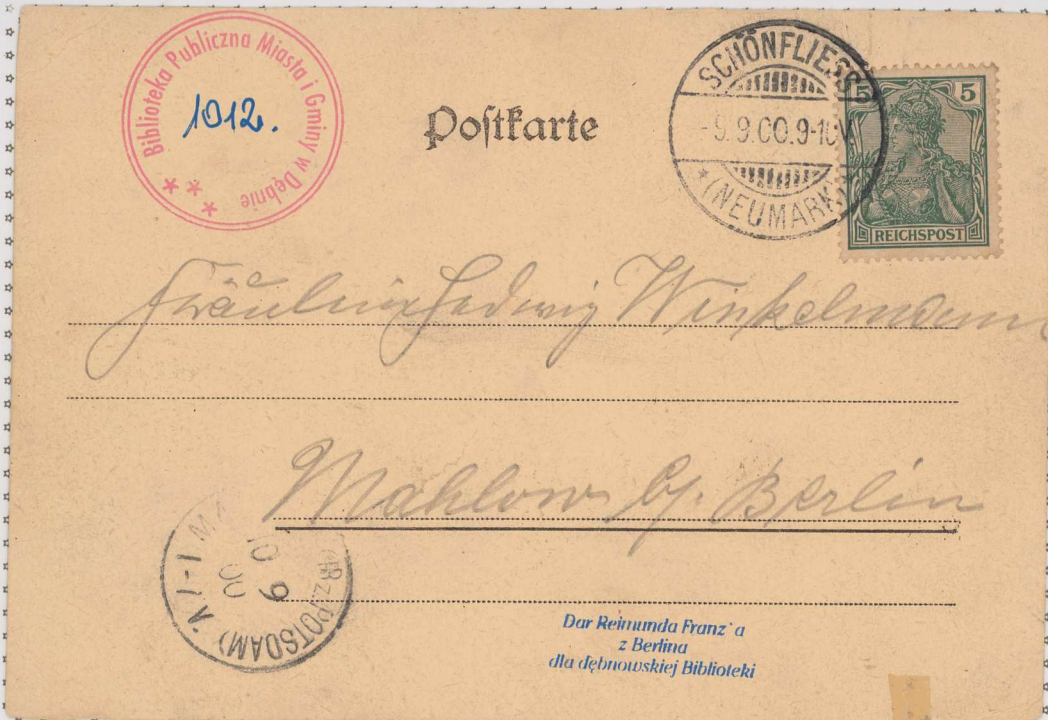 Biblioteka Publiczna Miasta i Gminy w Dębnie
1012.
Postkarte
SCHÖNFLIESS
-9.9.00.9-10V
(NEUMARK)
5 5
REICHSPOST
Fräulein Hedwig Winkelmann
Mahlow b/. Berlin
(BZ. POTSDAM)
10 9
00
7-1
Dar Reimunda Franz`a
z Berlina
dla dębnowskiej Biblioteki